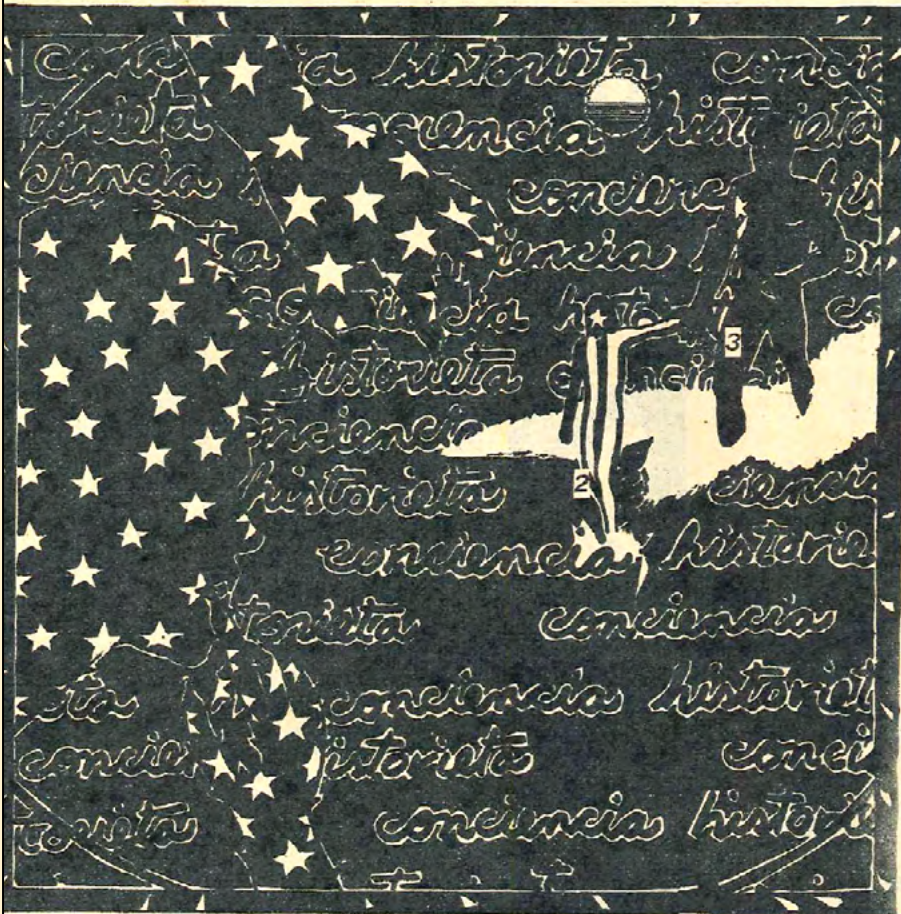 conc a historieta concie
torieta nciencia historieta
ciencia concienc his
1 ta iencia
conciencia histo co
historieta conciencia hi
onciencia
3
2
historieta ciencia
conciencia historie
torieta conciencia
eta conciencia historiet
concien istorieta conci
torieta conciencia histori